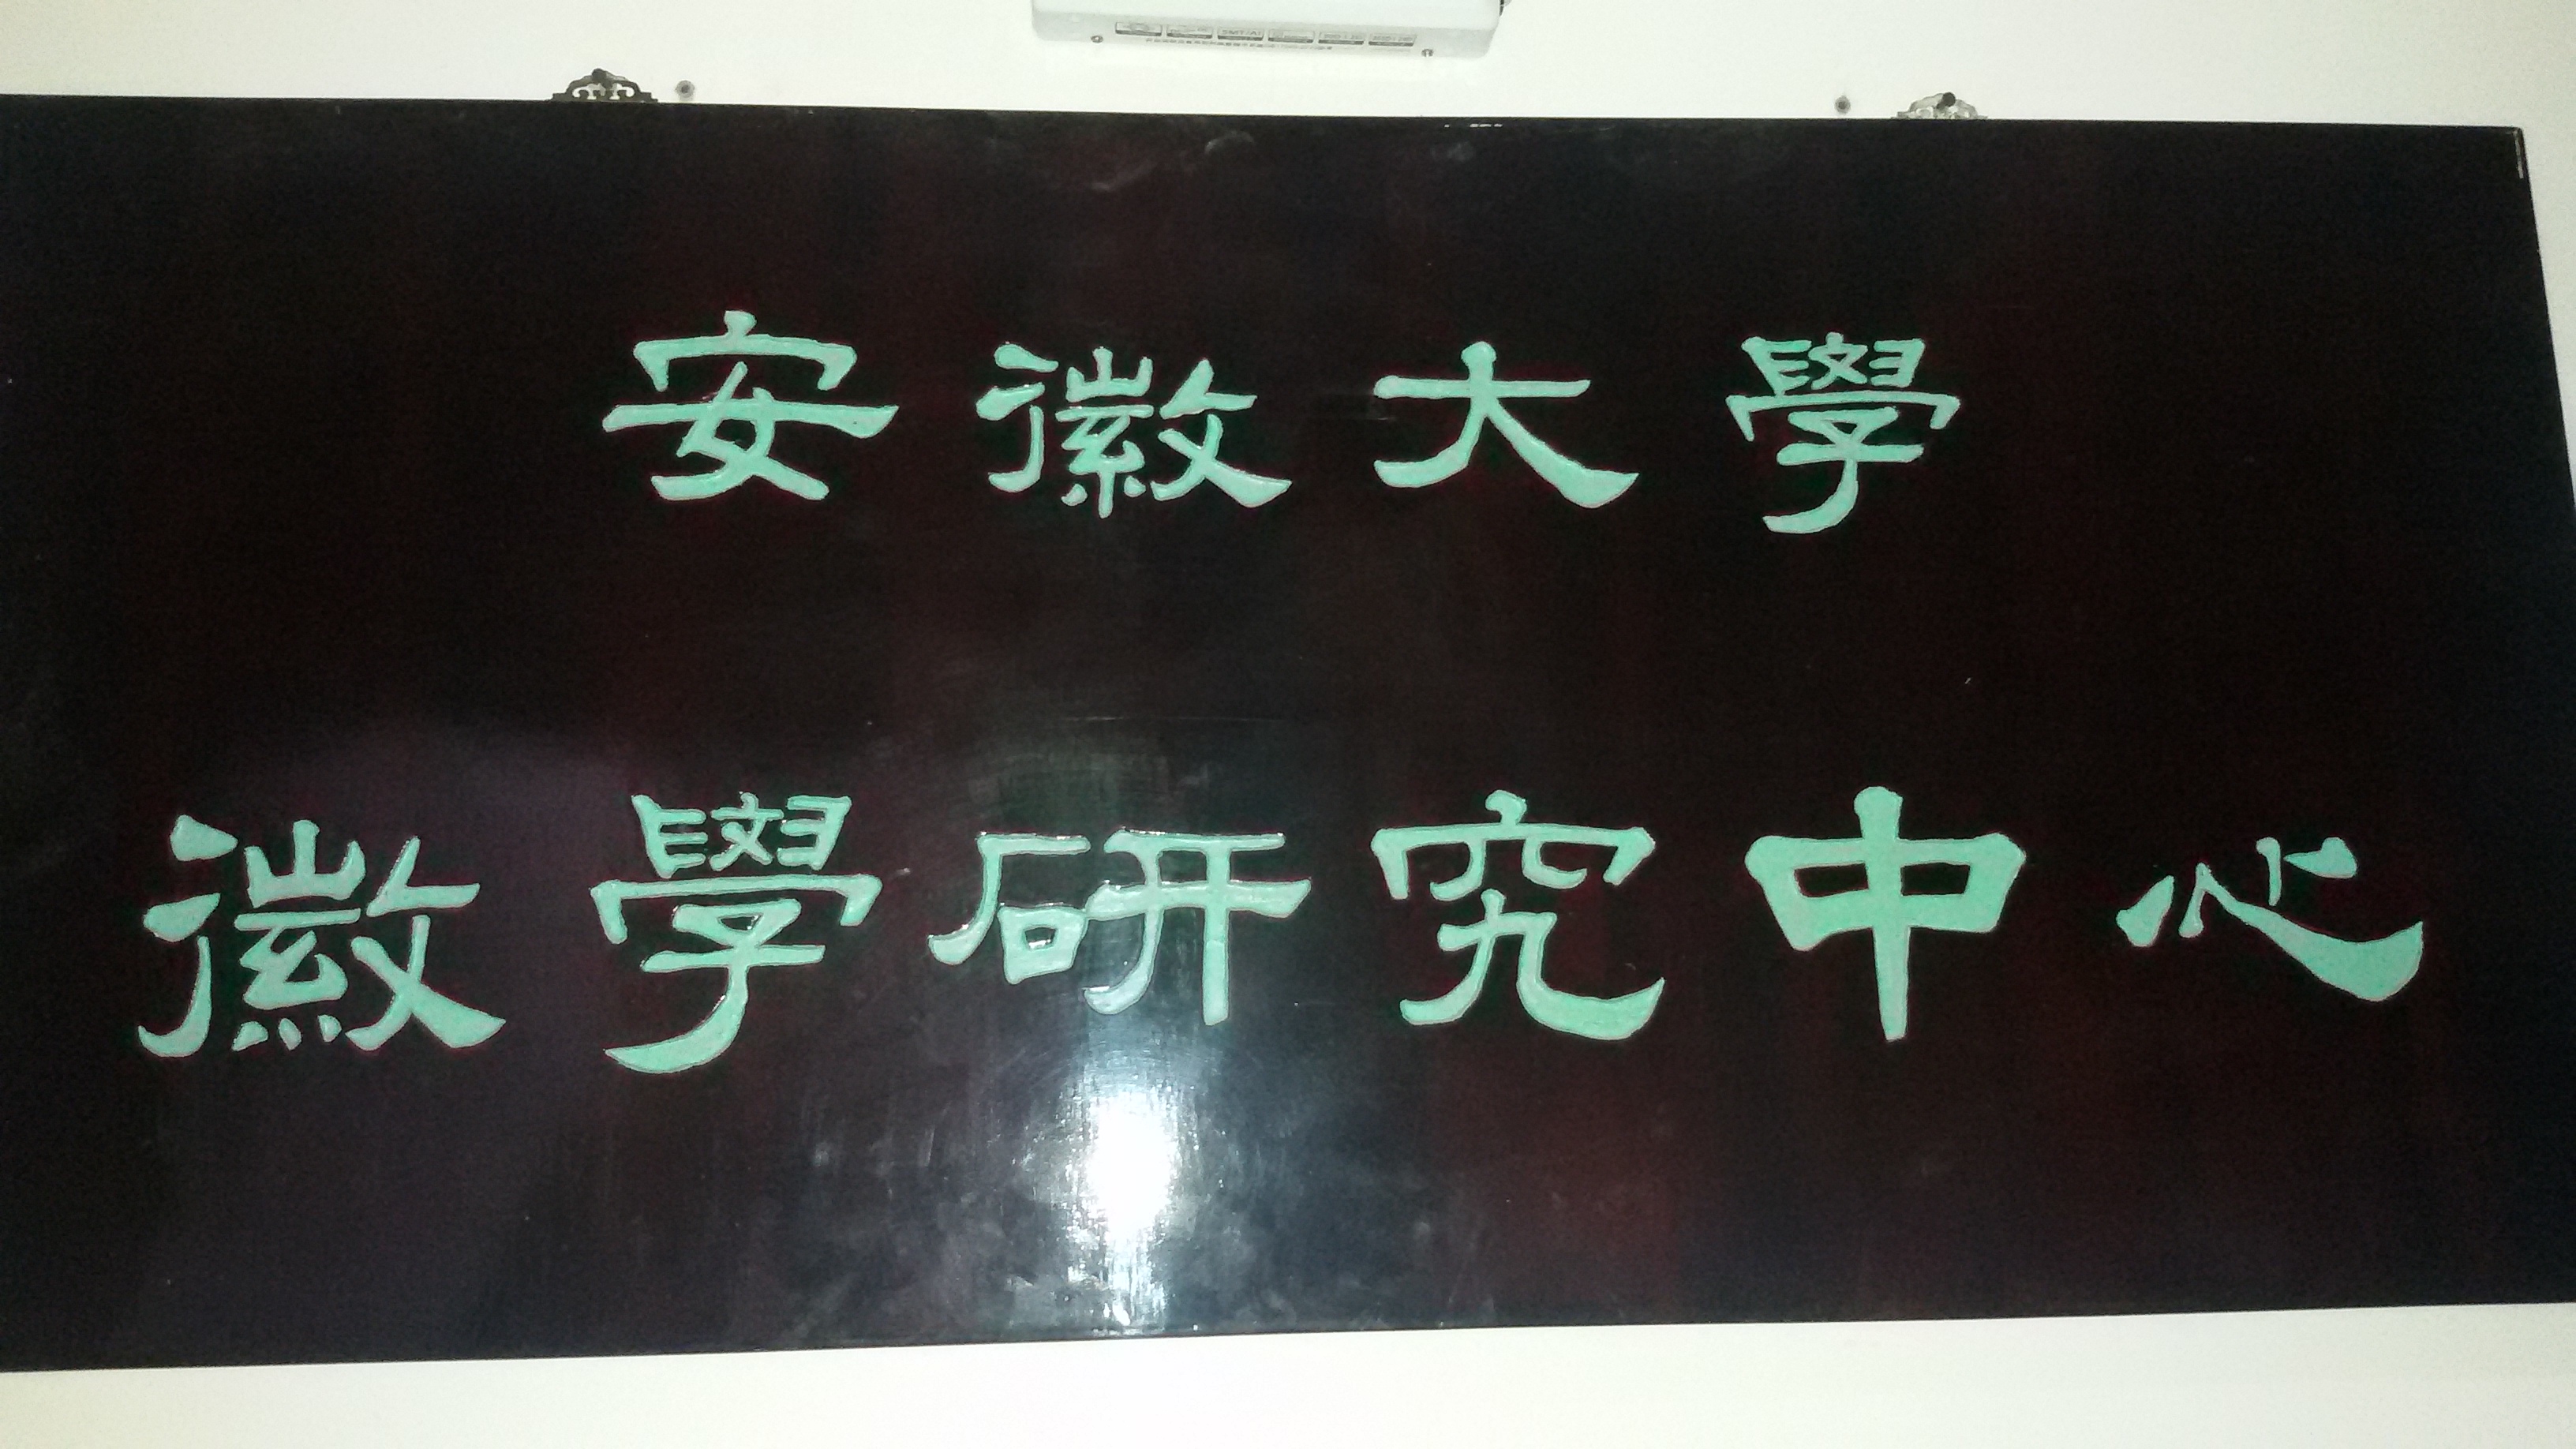 安徽大學
徽學研究中心